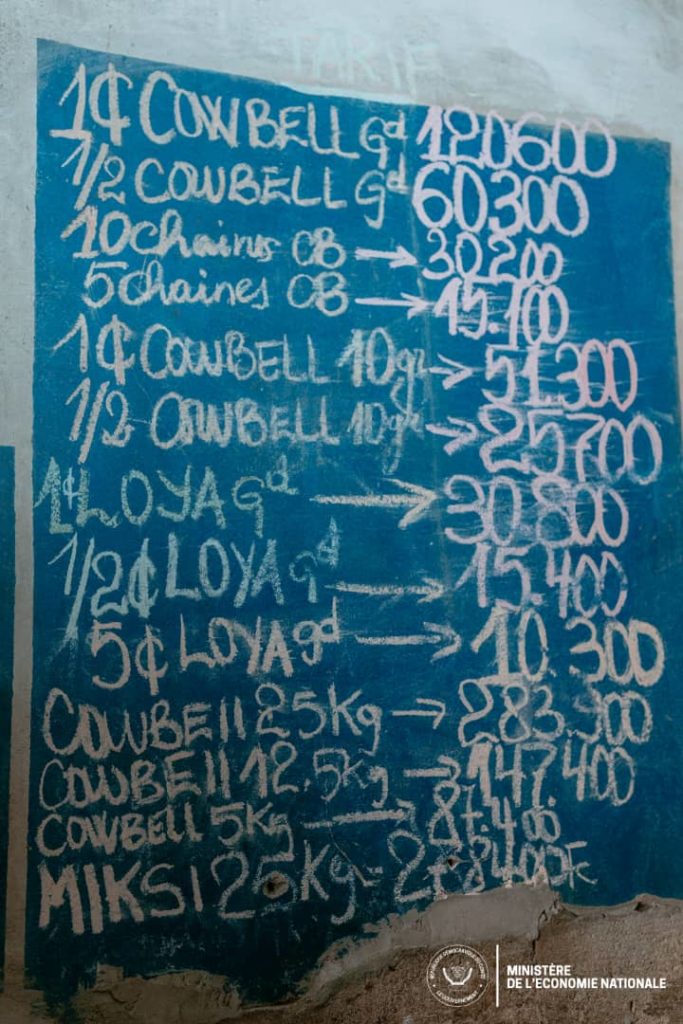 TARIF
1₵ COWBELL Gd 120600
1/2 COWBELL Gd 60300
10chaines CB → 30.200
5chaines CB → 15.100
1₵ COWBELL 10gr → 51.300
1/2 COWBELL 10gr → 25700
1₵ LOYA Gd → 30.800
1/2₵ LOYA gd → 15.400
5₵ LOYA gd → 10.300
COWBEll 25Kg → 283.900
COWBEll 12.5Kg → 147.400
COWBEll 5Kg → 87.400
MIKSI 25Kg =
MINISTÈRE
DE L'ECONOMIE NATIONALE